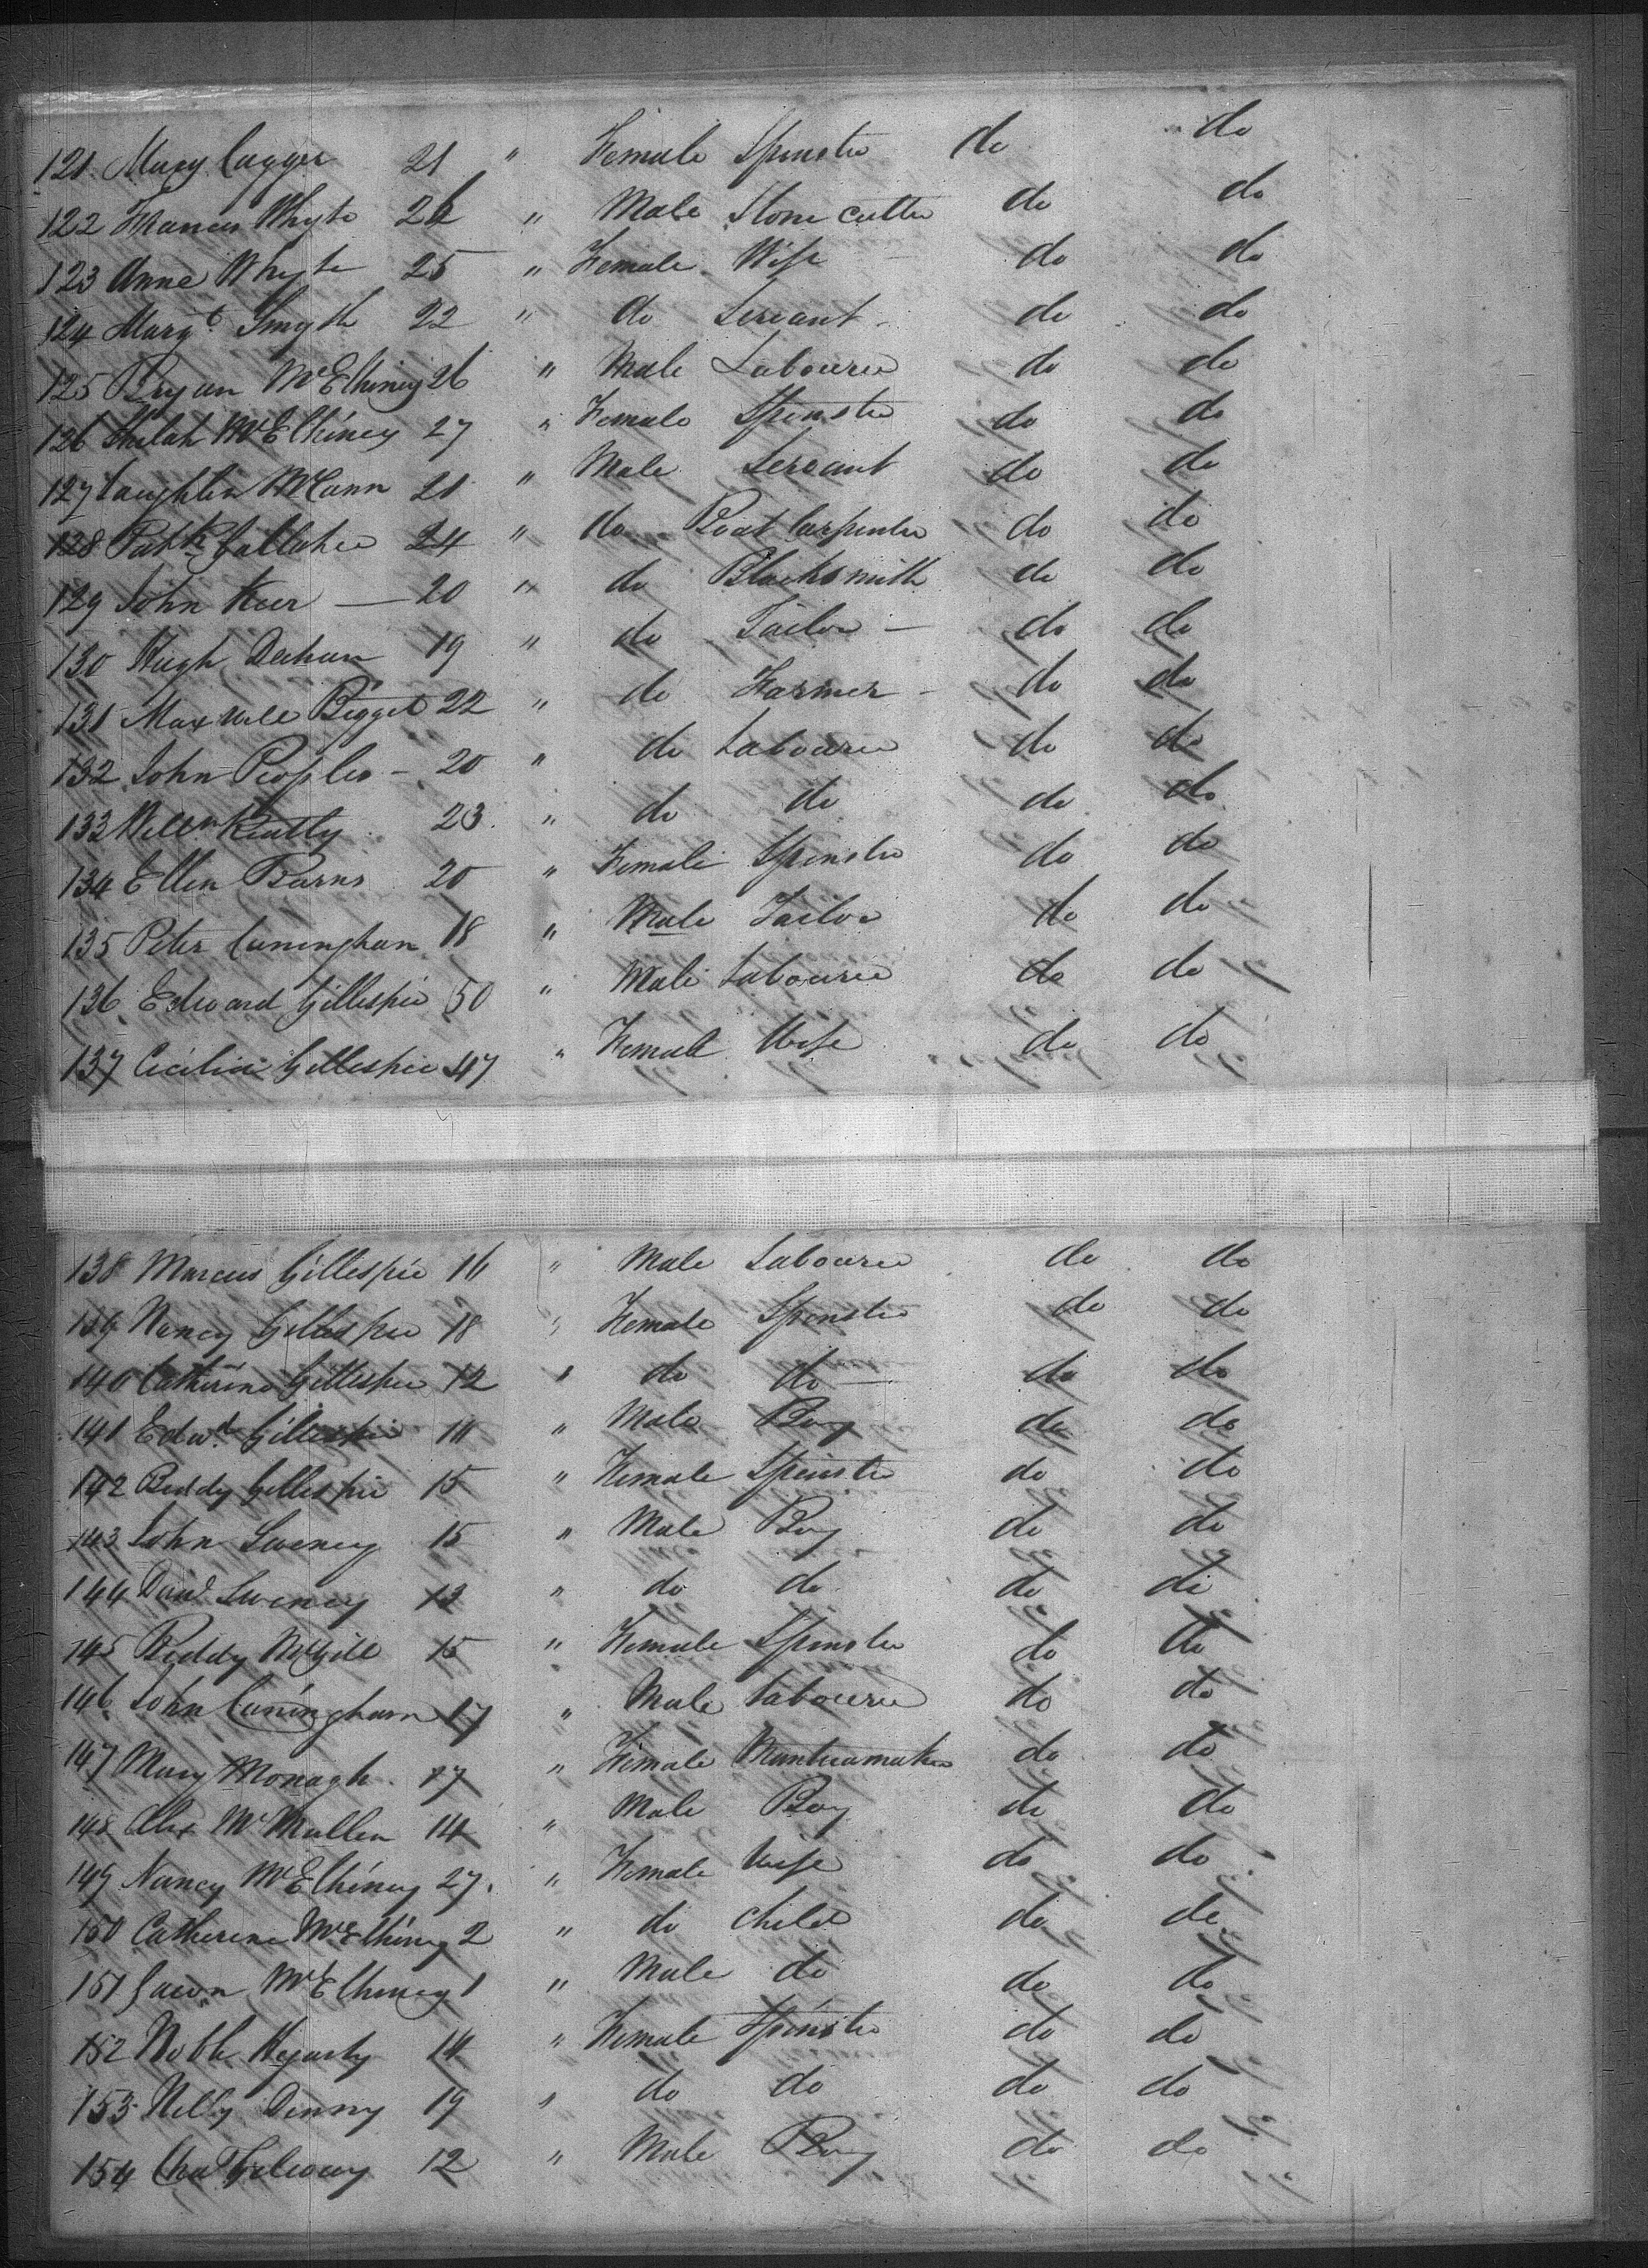 121 Mary Cagger 21 " Female Spinster do do
122 Frances Whyte 26 " Male Stone cutter do do
123 Anne Whyte 25 " Female Wife do do
124 Margt Smyth 22 " do Servant do do
125 Bryan McElhiney 26 " Male Labourer do do
126 Shilah McElhiney 27 " Female Spinster do do
127 Laughlin McCann 21 " Male Servant do do
128 Pattk Gallaher 24 " do Boat Carpenter do do
129 John Keer — 20 " do Blacksmith do do
130 Hugh Deehan 19 " do Tailor — do do
131 Maxwell Bigget 22 " do Farmer - do do
132 John Peoples - 20 " do Labourer do do
133 Willm 23 " do do do do
134 Ellen Burns 20 " Female Spinster do do
135 Peter Cuningham 18 " Male Tailor do do
136 Edward Gillespie 50 " Male Labourer do do
137 Cicilia Gillespie 47 " Female Wife do do
138 Marcus Gillespie 16 " Male Labourer do do
139 Nancy Gillespie 18 " Female Spinster do do
140 Catherine Gillespie 12 " do do — do do
141 Edwd Gillespie 11 " Male Boy do do
142 Biddy Gillespie 15 " Female Spinster do do
143 John Sweney 15 " Male Boy do do
144 Danl Sweney 13 " do do do do
145 Biddy McGill 15 " Female Spinster do do
146 John Cuningham 17 " Male Labourer do do
147 Mary Monagh 17 " Female Mantuamaker do do
148 Alex McMullen 14 " Male Boy do do
149 Nancy McElhiney 27 " Female Wife do do
150 Catherine McElhiney 2 " do Child do do
151 McElhiney 1 " Male do do do
152 Hegarty 14 " Female Spinster do do
153 Nelly Denny 19 " do do do do
154 Chas 12 " Male Boy do do